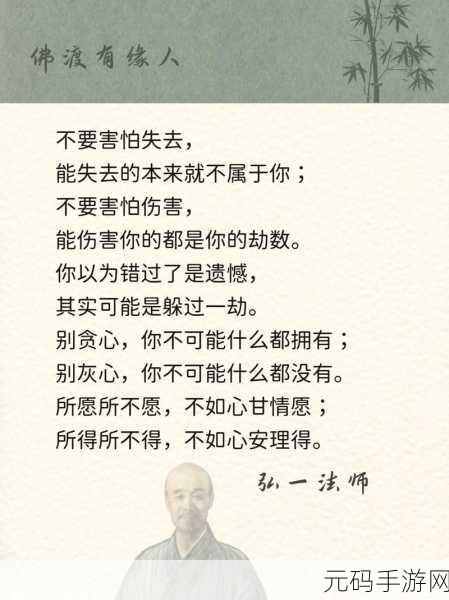 佛渡有缘人
不要害怕失去，
能失去的本来就不属于你；
不要害怕伤害，
能伤害你的都是你的劫数。
你以为错过了是遗憾，
其实可能是躲过一劫。
别贪心，你不可能什么都拥有；
别灰心，你不可能什么都没有。
所愿所不愿，不如心甘情愿；
所得所不得，不如心安理得。
弘一法师
元码手游网